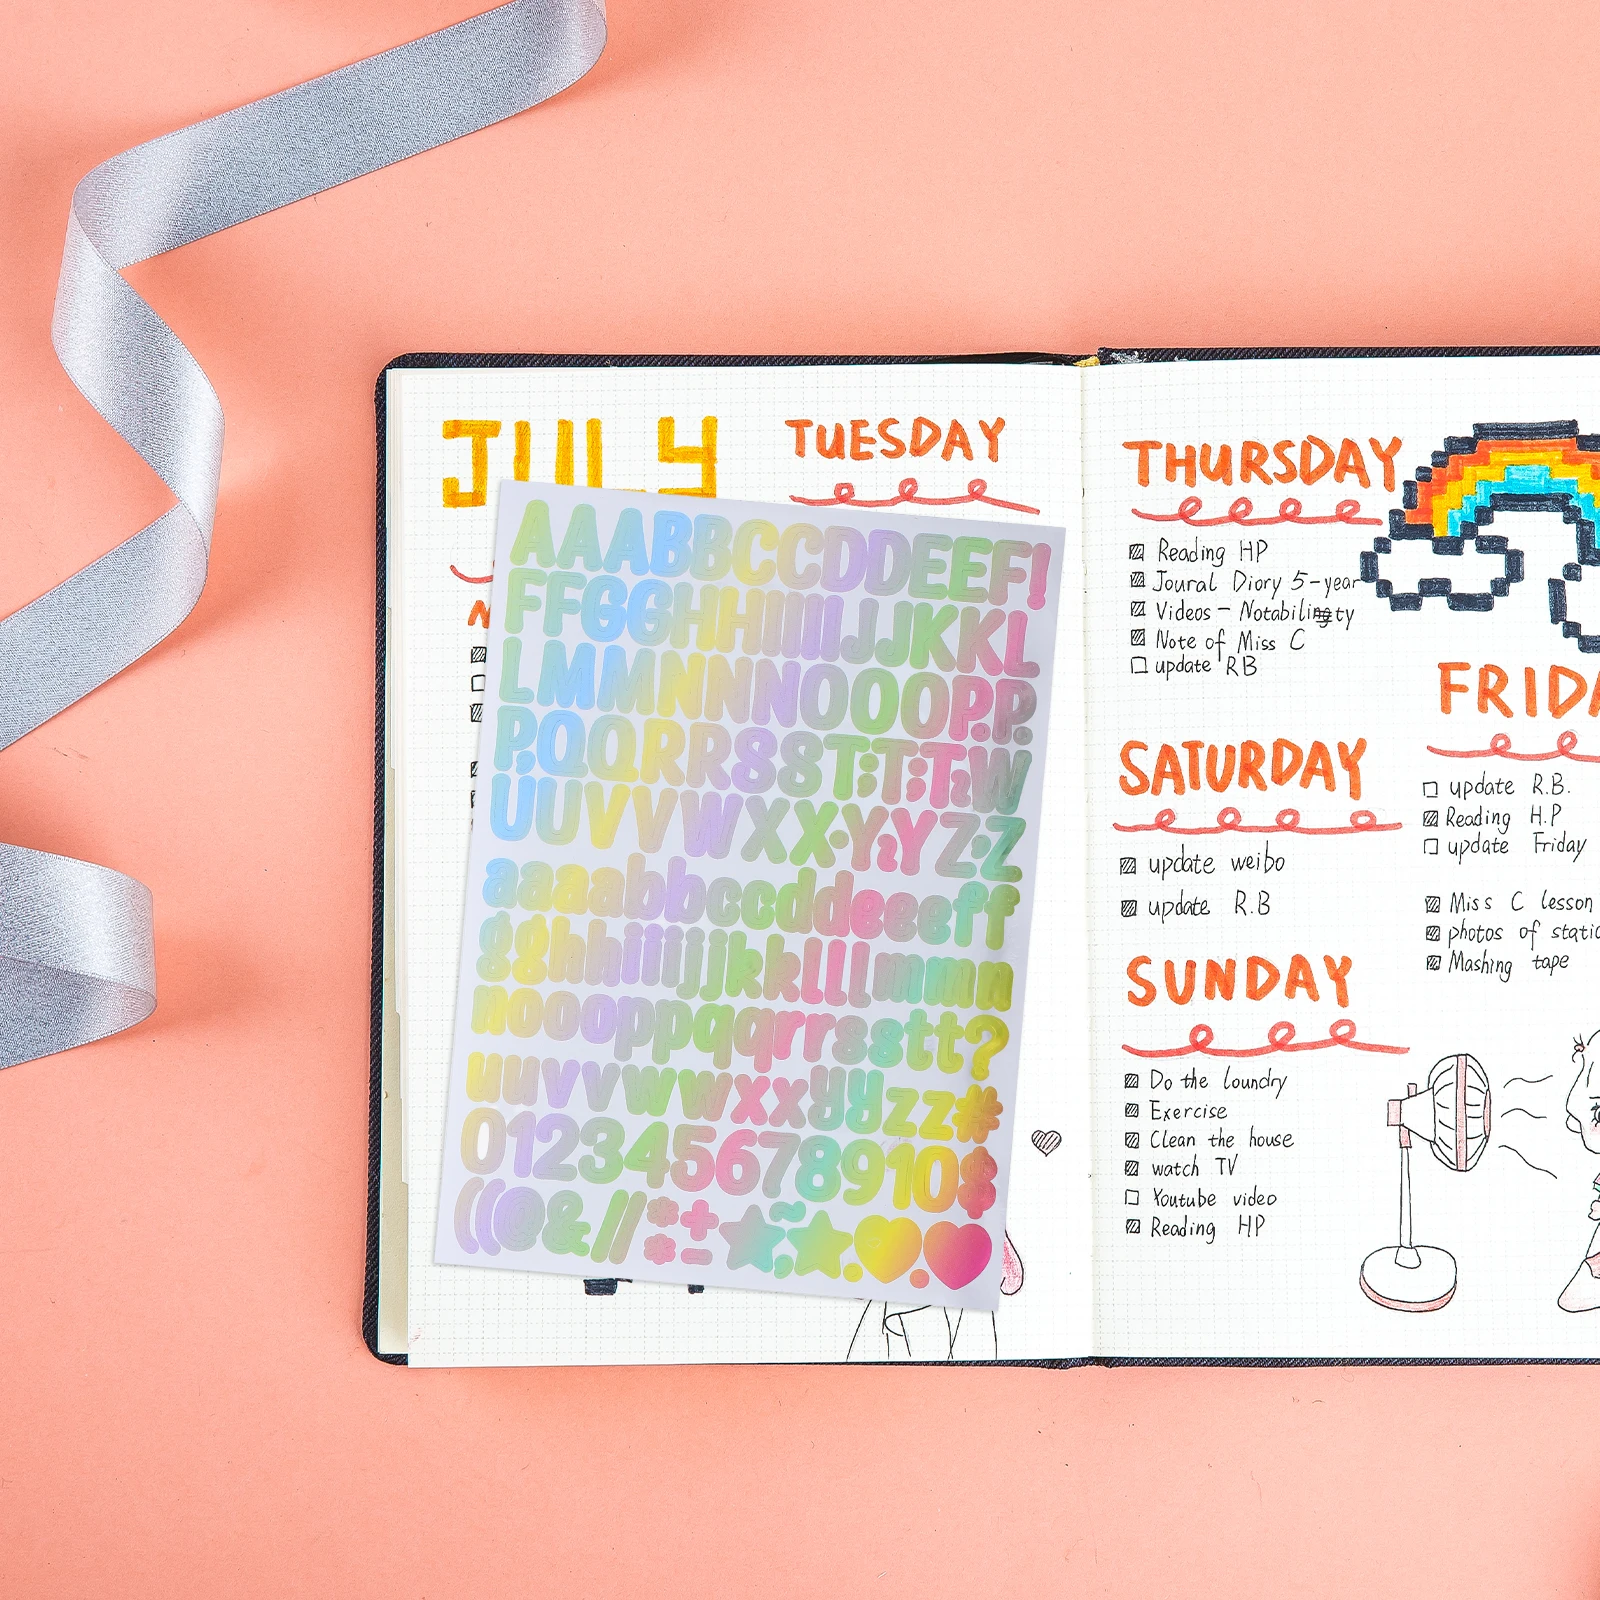 JULY
TUESDAY
AAABBCCDDEEF!
FFGGHHIIIIJJKKL
LMMNNNOOOP.P.
P,QQRRSST;T;T
UUVVWXXYYZZ
aaaabbccddeeeff
gghhiiijjkklllmmn
nooopppqqrrssstt?
uuvvwwxxyyzz#
012345678910$
((@&//
THURSDAY
Reading HP
Joural Diory 5-year
Videos - Notability
Note of Miss C
update RB
FRIDA
update R.B.
Reading H.P
update Friday
Miss C lesson
photos of static
Mashing tape
SATURDAY
update weibo
update R.B
SUNDAY
Do the loundry
Exercise
Clean the house
watch TV
Youtube video
Reading HP